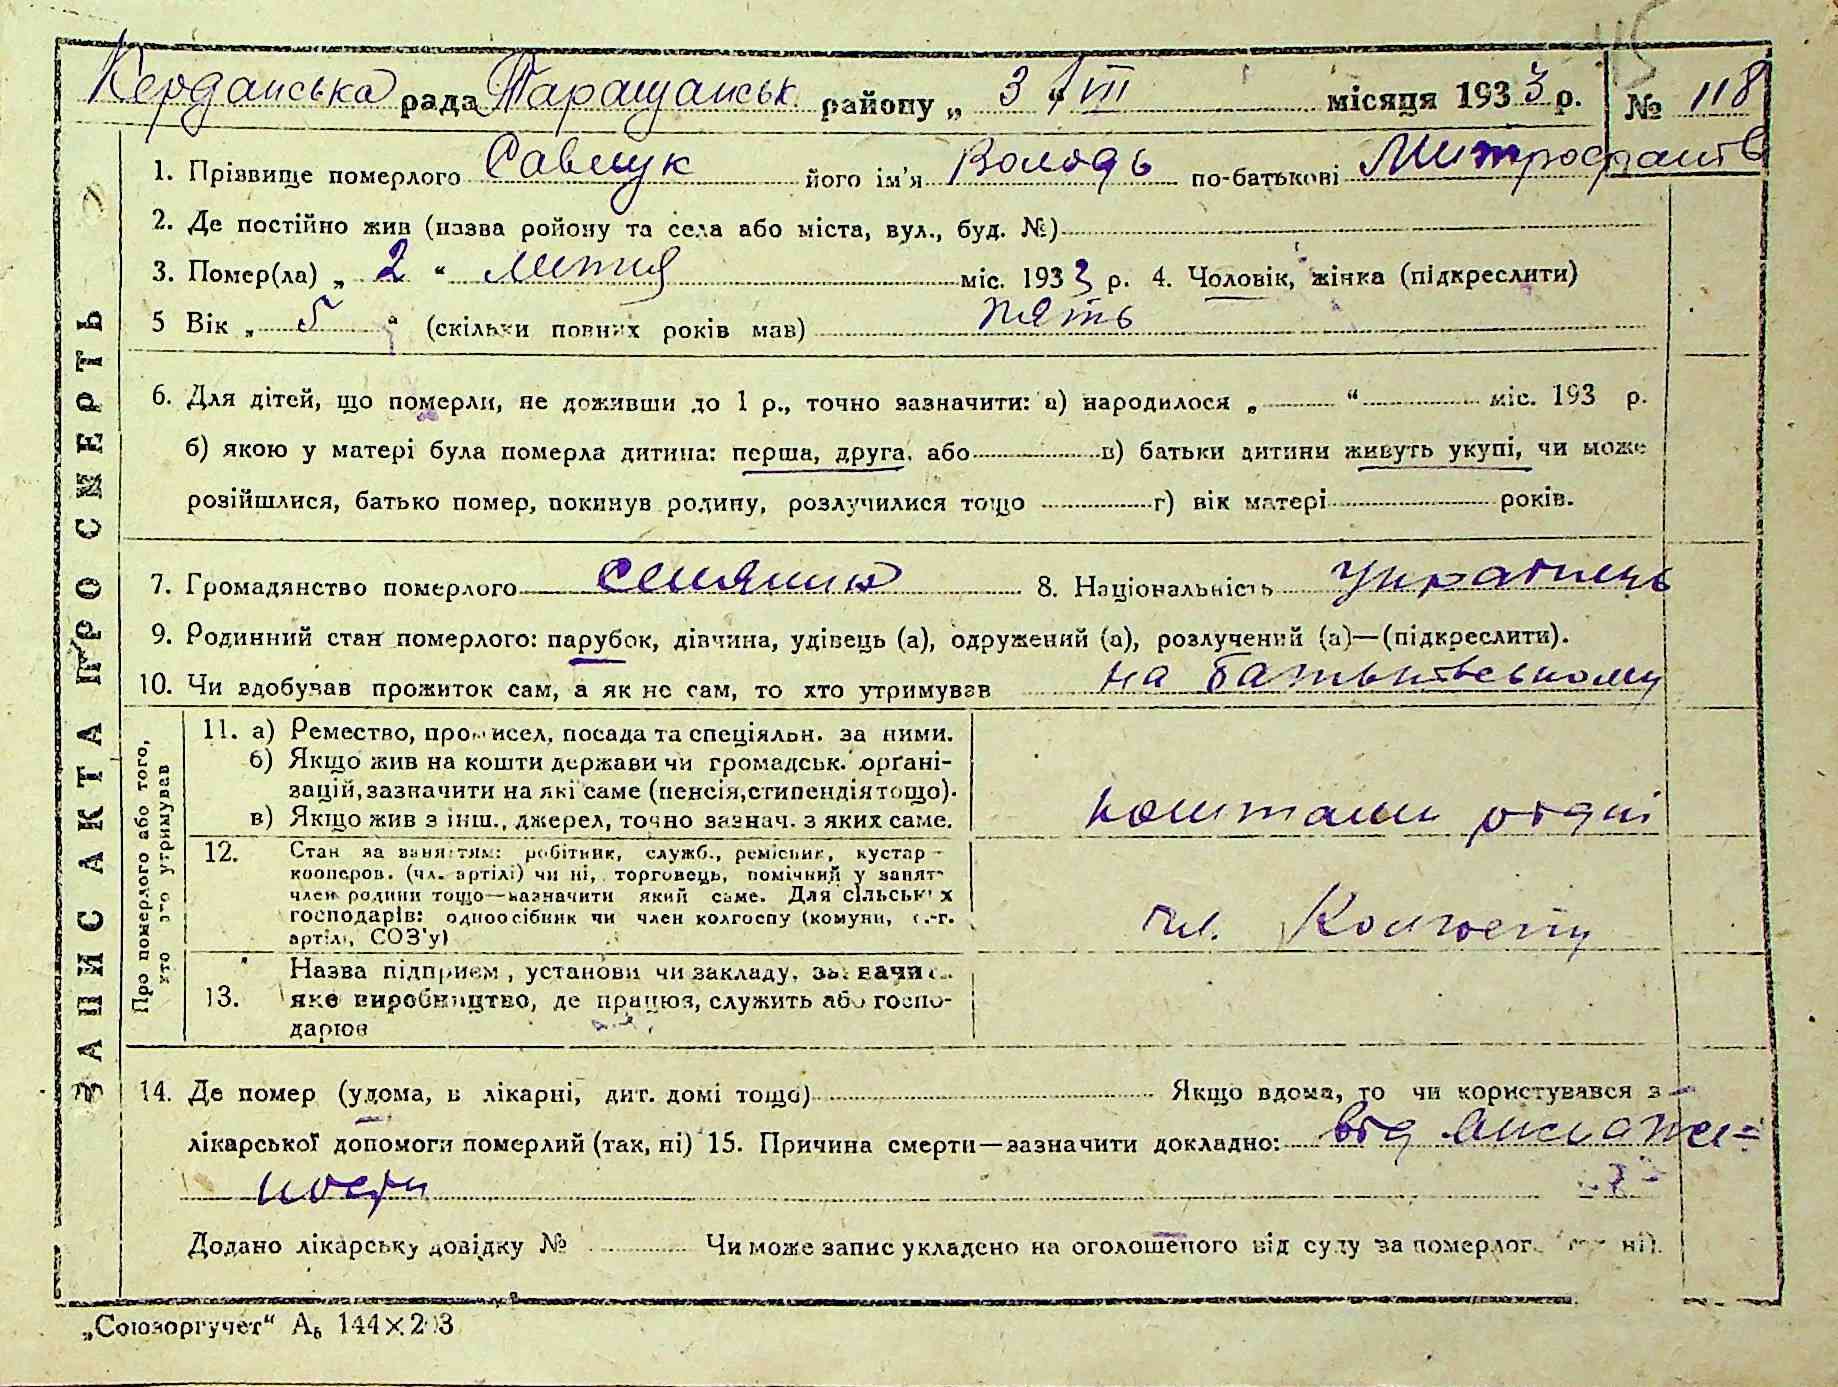 45
Керданська рада Таращанськ району „ 3 “ VII місяця 1933 р. № 118
1. Прізвище померлого Савчук його ім'я Володь по-батькові Митрофанів
2. Де постійно жив (назва ройону та села або міста, вул., буд. №)
3. Помер(ла) „ 2 “ липня міс. 1933 р. 4. Чоловік, жінка (підкреслити)
5 Вік „ 5 “ (скільки повних років мав) пять
6. Для дітей, що померли, не доживши до 1 р., точно зазначити: а) народилося „ “ міс. 193 р.
б) якою у матері була померла дитина: перша, друга, або в) батьки дитини живуть укупі, чи може
розійшлися, батько помер, покинув родину, розлучилися тощо г) вік матері років.
7. Громадянство померлого селянин 8. Національність українець
9. Родинний стан померлого: парубок, дівчина, удівець (а), одружений (а), розлучений (а)—(підкреслити).
10. Чи здобував прожиток сам, а як не сам, то хто утримував на батьківському
11. а) Ремество, промисел, посада та спеціяльн. за ними.
б) Якщо жив на кошти держави чи громадськ. орґані-
зацій, зазначити на які саме (пенсія, стипендія тощо).
в) Якщо жив з інш., джерел, точно зазнач. з яких саме.
12. Стан за заняттям: робітник, служб., ремісник, кустар
кооперов. (чл. артілі) чи ні, торговець, помічний у занят
член родини тощо—назначити який саме. Для сільських
господарів: одноосібник чи член колгоспу (комуни, с.-г.
артілі, СОЗ'у) чл. Колгоспу
Назва підприєм, установи чи закладу, зазначи
13. яке виробництво, де працює, служить або госпо-
дарює
Про померлого або того,
хто його утримував
ЗАПИС АКТА ПРО СМЕРТЬ
14. Де помер (удома, в лікарні, дит. домі тощо) Якщо вдома, то чи користувався з
лікарської допомоги померлий (так, ні) 15. Причина смерти—зазначити докладно: від
Додано лікарську довідку № Чи може запис укладено на оголошеного від суду за померлог ні).
„Союзоргучет“ А₆ 144×203